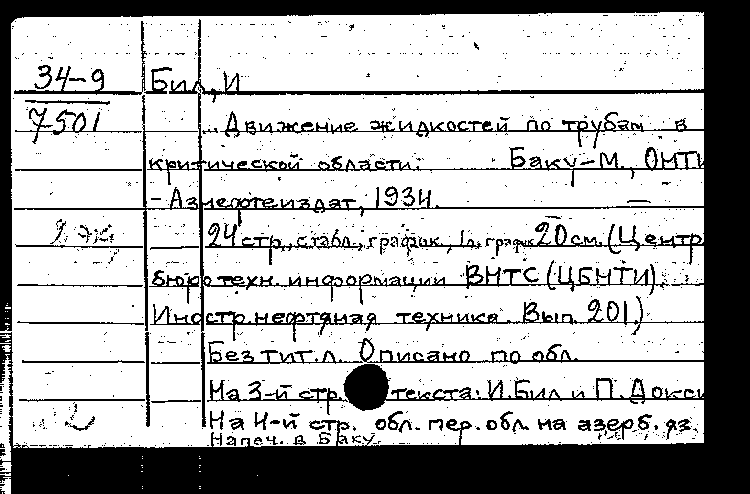 34-9 Бил, И
7501
... Движение жидкостей по трубам в
критической области. Баку-М., ОНТИ
- Азнефтеиздат, 1934.
2 эк
24 стр., с табл., график., 1 л. график 20 см. (Центр
бюро техн. информации ВНТС (ЦБНТИ).
Иностр. нефтяная техника. Вып. 201.)
Без тит. л. Описано по обл.
На 3-й стр. текста: И. Бил и П. Докси
На 4-й стр. обл. пер. обл. на азерб. яз.
Напеч. в Баку.
2